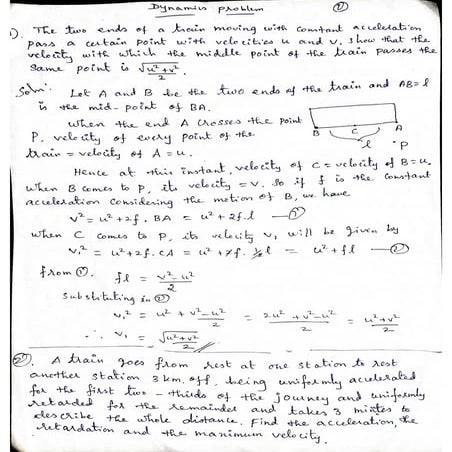 Dynamics problem
②
①. The two ends of a train moving with constant acceleration
pass a certain point with velocities u and v. Show that the
velocity with which the middle point of the train passes the
same point is √(u²+v²)/2.
Soln:
Let A and B be the two ends of the train and AB=l
is the mid-point of BA.
When the end A crosses the point
P, velocity of every point of the
train = velocity of A = u.
B C A
l
•P
Hence at this instant, velocity of C = velocity of B = u.
When B comes to P, its velocity = v. So if f is the constant
acceleration considering the motion of B, we have
v² = u² + 2f. BA = u² + 2f.l —①
When C comes to P, its velocity v₁ will be given by
v₁² = u² + 2f. CA = u² + 2f. ½l = u² + fl —②
from ①. fl = (v²-u²)/2
Substituting in ②
v₁² = u² + (v²-u²)/2 = (2u²+v²-u²)/2 = (u²+v²)/2
∴ v₁ = √(u²+v²)/2
②. A train goes from rest at one station to rest
another station 3 km. off, being uniformly accelerated
for the first two-thirds of the journey and uniformly
retarded for the remainder and takes 3 mintes to
describe the whole distance. Find the acceleration, the
retardation and the maximum velocity.